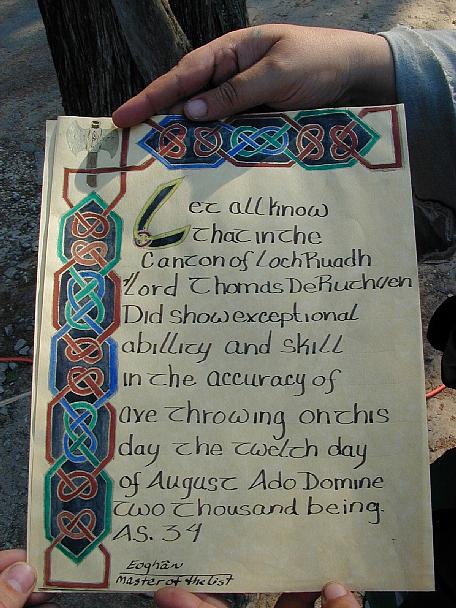 Let all know
that in the
Canton of Loch Ruadh
Lord Thomas DeRuthven
Did show exceptional
abillity and skill
in the accuracy of
axe throwing on this
day the twelth day
of August Ado Domine
two thousand being
A.S. 34
Eoghän
Master of the List